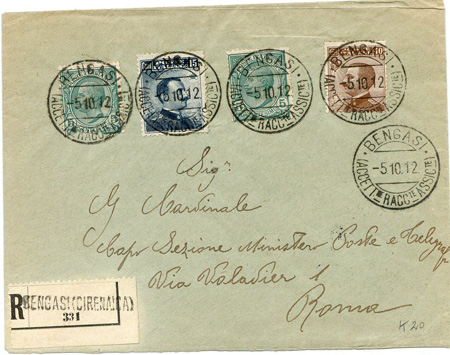 5 15 5 40
BENGASI -5.10.12 (ACCETT.NE RACC.TE ASSIC.TE)
BENGASI -5.10.12 (ACCETT.NE RACC.TE ASSIC.TE)
BENGASI -5.10.12 (ACCETT.NE RACC.TE ASSIC.TE)
BENGASI -5.10.12 (ACCETT.NE RACC.TE ASSIC.TE)
BENGASI -5.10.12 (ACCETT.NE RACC.TE ASSIC.TE)
Sigr.
G Cardinale
Capo Sezione Ministero Poste e Telegraf
Via Valadier 1
Roma
R BENGASI (CIRENAICA)
331
K 20